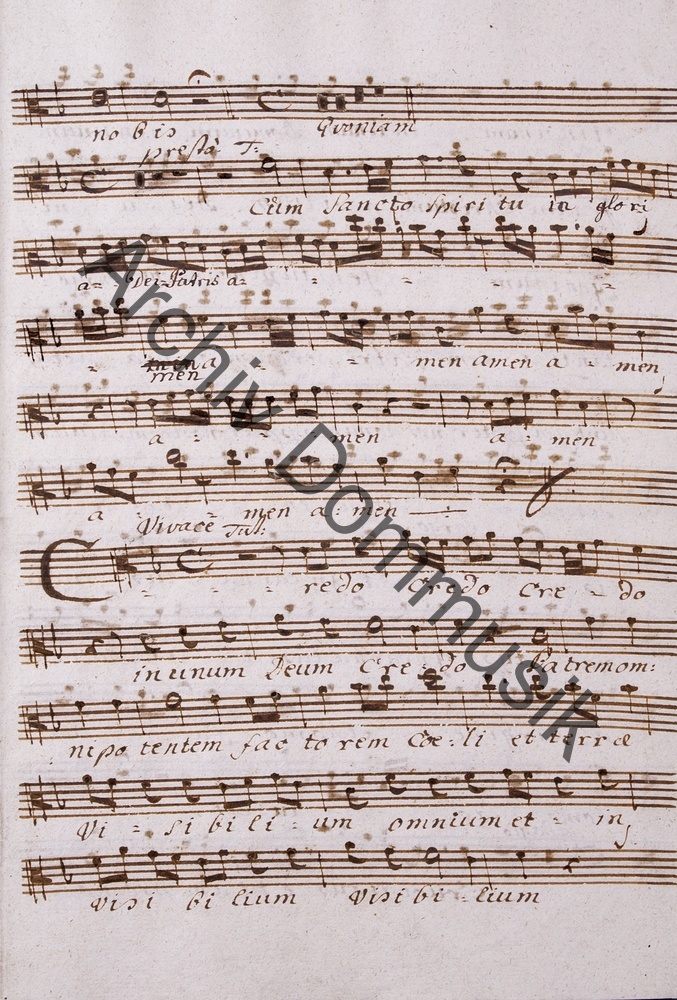 no bis Quoniam
presto T:
Cum Sancto Spiri tu in glori
a- Dei Patris a- - - - -
- men a - - men amen a - men
a - men a - men
a - men a - men
Vivace Tutt:
C - - - redo Credo Cre - do
in unum Deum Cre - do Patrem om:
nipo tentem fac to rem Coe - li et terrae
Vi - si bi li - um omnium et - in
visi bi lium Visi bi - lium
Archiv Dommusik